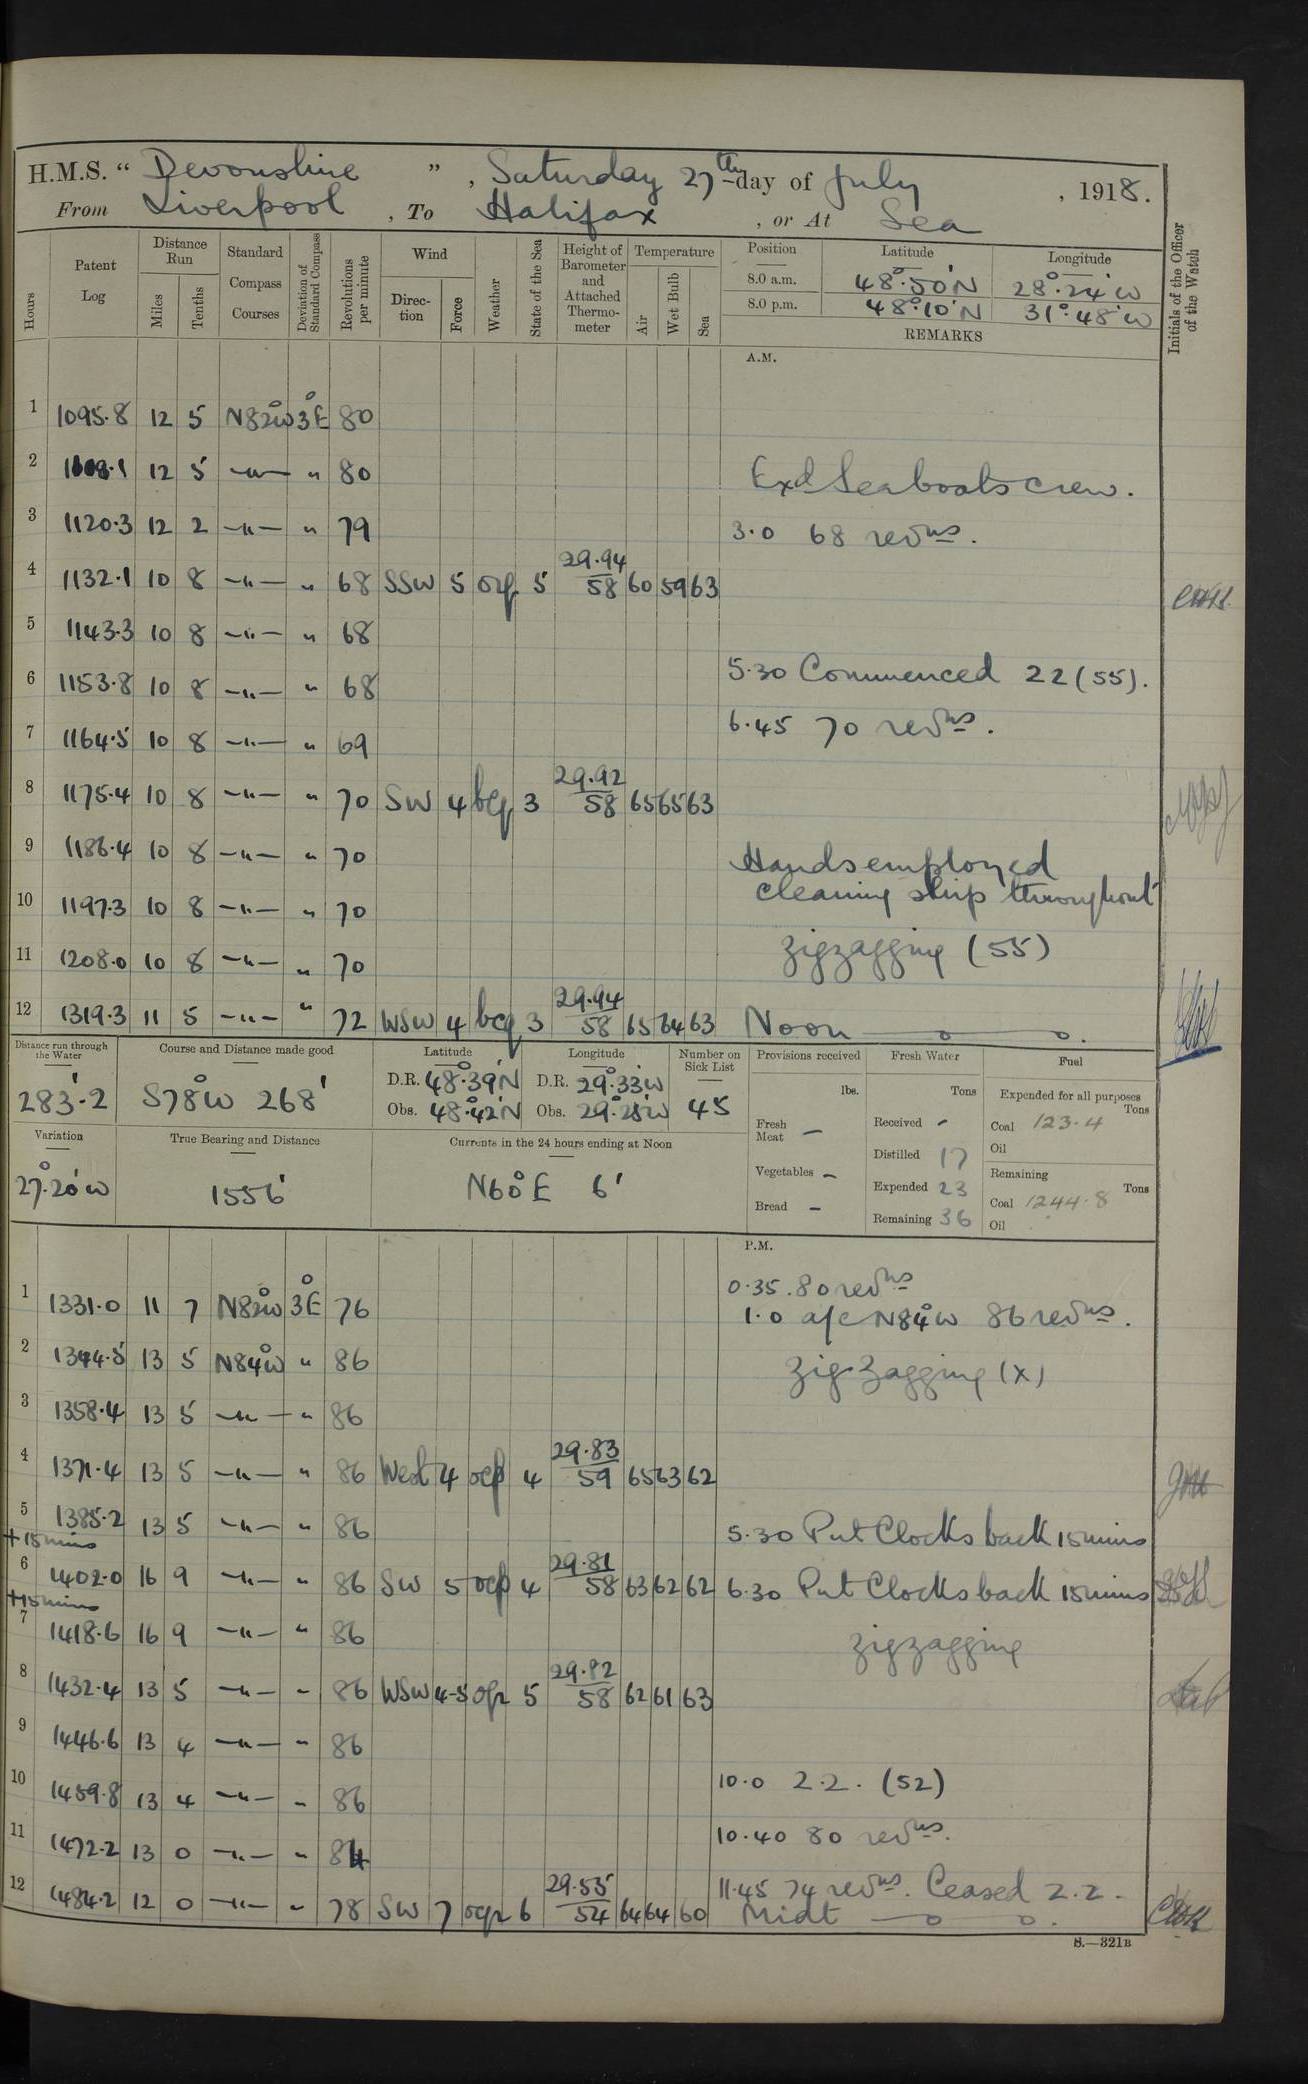 H.M.S. “ Devonshire ” , Saturday 27th day of July , 1918.
From Liverpool , To Halifax , or At Sea
Hours
Patent Log
Distance Run
Miles
Tenths
Standard Compass Courses
Deviation of Standard Compass
Revolutions per minute
Wind
Direction
Force
Weather
State of the Sea
Height of Barometer and Attached Thermometer
Temperature
Air
Wet Bulb
Sea
Position Latitude Longitude
8.0 a.m. 48°.50'N 28°.24'W
8.0 p.m. 48°.10'N 31°.48'W
REMARKS
Initials of the Officer of the Watch
A.M.
1 1095.8 12 5 N82°W 3°E 80
2 1108.1 12 5 —„— „ 80 Exd Seaboats crew.
3 1120.3 12 2 —„— „ 79 3.0 68 revns.
4 1132.1 10 8 —„— „ 68 SSW 5 5 29.94 58 60 59 63
5 1143.3 10 8 —„— „ 68
6 1153.8 10 8 —„— „ 68 5.30 Commenced 22 (55).
7 1164.5 10 8 —„— „ 69 6.45 70 revns.
8 1175.4 10 8 —„— „ 70 SW 4 bcq 3 29.92 58 65 65 63
9 1186.4 10 8 —„— „ 70 Hands employed
10 1197.3 10 8 —„— „ 70 cleaning ship throughout
11 1208.0 10 8 —„— „ 70 Zigzagging (55)
12 1319.3 11 5 —„— „ 72 WSW 4 bcq 3 29.94 58 65 64 63 Noon
Distance run through the Water
283'.2
Course and Distance made good
S78°W 268'
Latitude
D.R. 48°.39'N
Obs. 48°.42'N
Longitude
D.R. 29°.33'W
Obs. 29°.28'W
Number on Sick List
45
Variation
27°.20'W
True Bearing and Distance
1556'
Currents in the 24 hours ending at Noon
N60°E 6'
Provisions received
lbs.
Fresh Meat —
Vegetables —
Bread —
Fresh Water
Tons
Received -
Distilled 17
Expended 23
Remaining 36
Fuel
Expended for all purposes
Tons
Coal 123.4
Oil
Remaining
Tons
Coal 1244.8
Oil
P.M.
0.35. 80 revns
1 1331.0 11 7 N82°W 3°E 76 1.0 a/c N84°W 86 revns.
2 1344.5 13 5 N84°W „ 86 Zig Zagging (x)
3 1358.4 13 5 —„— „ 86
4 1371.4 13 5 —„— „ 86 West 4 ocp 4 29.83 59 65 63 62
5 1385.2 13 5 —„— „ 86 5.30 Put Clocks back 15 mins
+15 mins
6 1402.0 16 9 —„— „ 86 SW 5 ocp 4 29.81 58 63 62 62 6.30 Put Clocks back 15 mins
+15 mins
7 1418.6 16 9 —„— „ 86 Zigzagging
8 1432.4 13 5 —„— „ 86 WSW 4-5 5 29.82 58 62 61 63
9 1446.6 13 4 —„— „ 86
10 1459.8 13 4 —„— „ 86 10.0 2.2. (52)
11 1472.2 13 0 —„— „ 84 10.40 80 revns.
12 1484.2 12 0 —„— „ 78 SW 7 6 29.55 54 64 64 60 11.45 74 revns. Ceased 2.2.
Midt
S.—321B